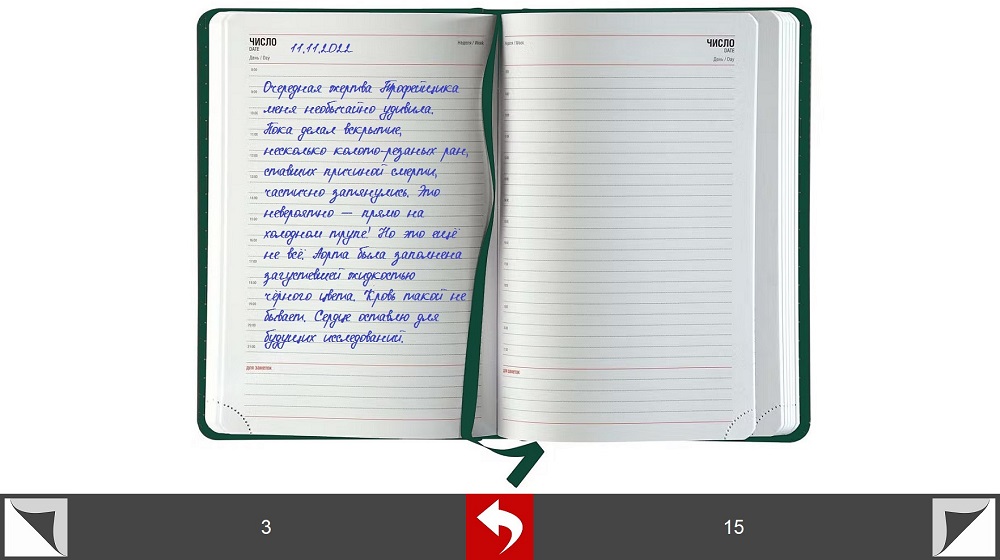 ЧИСЛО
DATE
11.11.2022
Неделя / Week
День / Day
Очередная жертва Профейщика
меня необычайно удивила.
Пока делал вскрытие,
несколько колото-резаных ран,
ставших причиной смерти,
частично затянулись. Это
невероятно — прямо на
холодном трупе! Но это ещё
не всё. Аорта была заполнена
загустевшей жидкостью
чёрного цвета. Кровь такой не
бывает. Сердце оставлю для
будущих исследований.
для заметок
Неделя / Week
ЧИСЛО
DATE
День / Day
для заметок
3
15